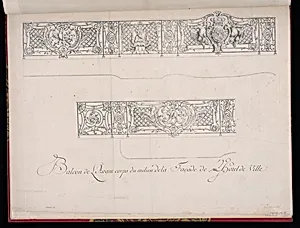 Balcon de L'Avant corps du milieu de la Façade de L'Hôtel de Ville.